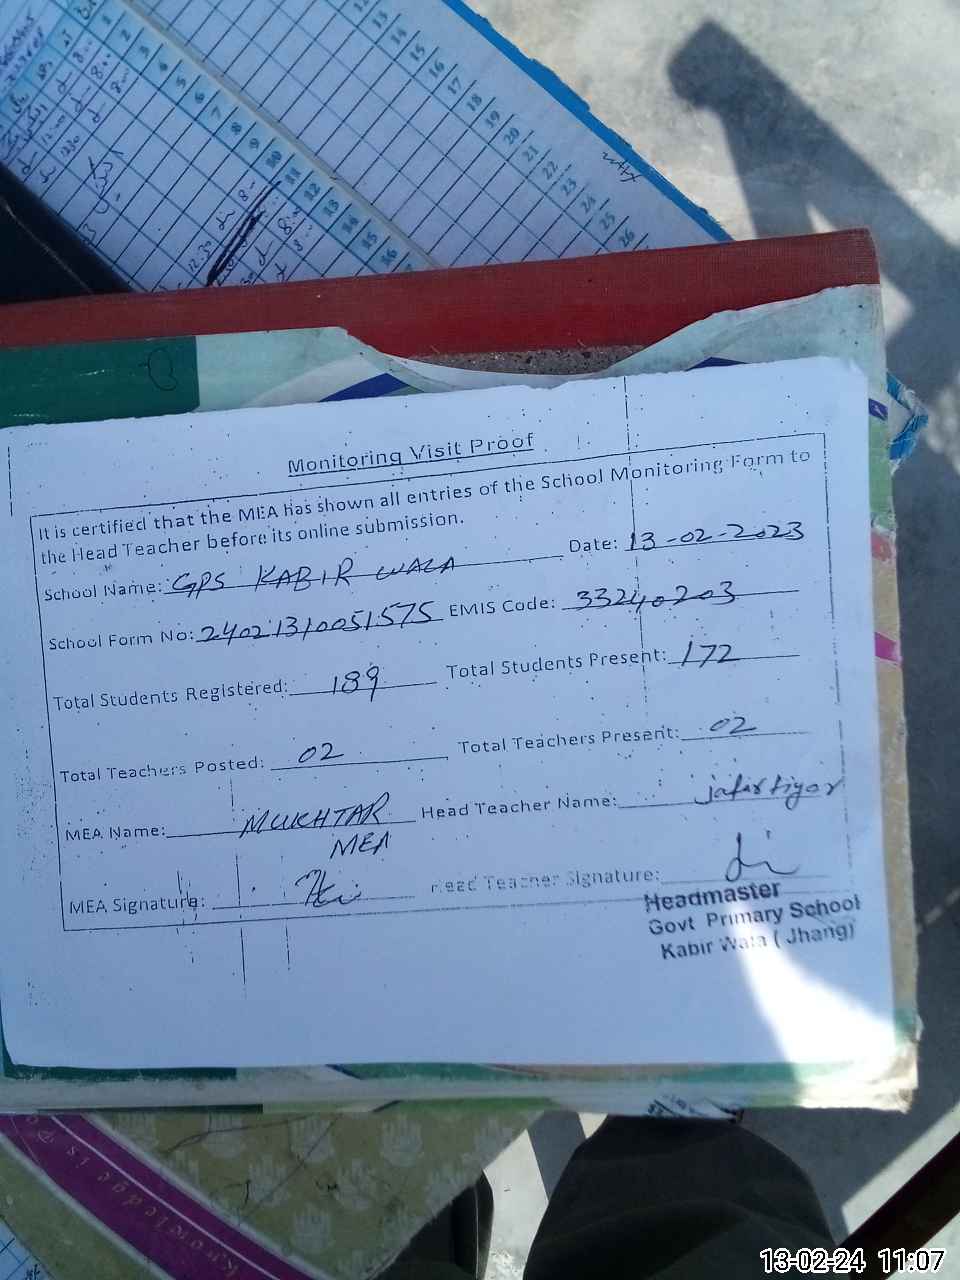 1
2
3
4
5
6
7
8
9
10
11
12
13
14
15
16
13
14
15
16
17
18
19
20
21
22
23
24
25
26
Monitoring Visit Proof
It is certified that the MEA has shown all entries of the School Monitoring Form to
the Head Teacher before its online submission.
School Name: GPS KABIR WALA Date: 13-02-2023
School Form No: 24021310051575 EMIS Code: 33240203
Total Students Registered: 189 Total Students Present: 172
Total Teachers Posted: 02 Total Teachers Present: 02
MEA Name: MUKHTAR Head Teacher Name:
MEA
MEA Signature: Head Teacher Signature:
Headmaster
Govt Primary School
Kabir Wala (Jhang)
Knowledge is
13-02-24 11:07